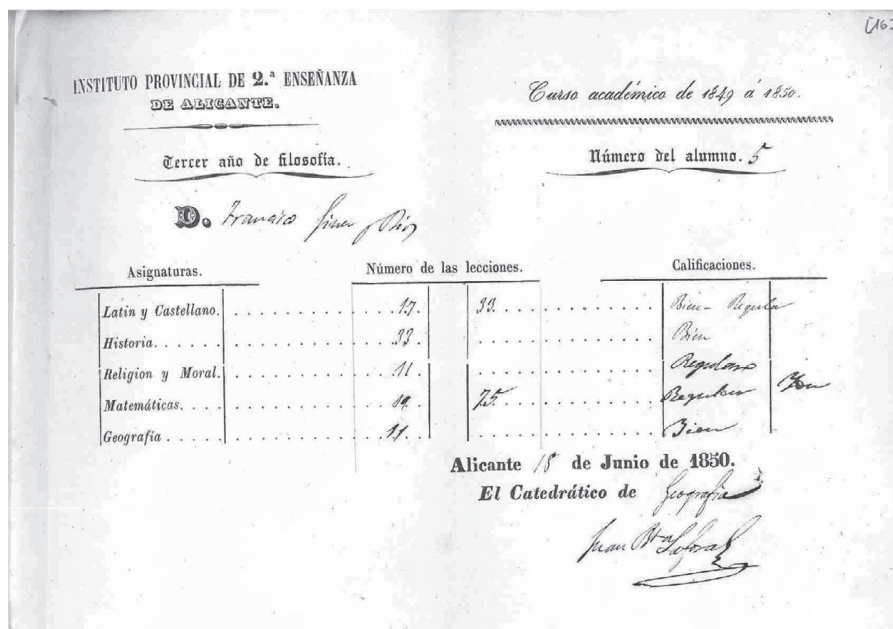 [16]
INSTITUTO PROVINCIAL DE 2.ª ENSEÑANZA
DE ALICANTE.
Curso académico de 1849 á 1850.
Tercer año de filosofía.
Número del alumno. 5
D. Francisco Giner y Rios
Asignaturas. Número de las lecciones. Calificaciones.
Latin y Castellano. 17. 33. Bien - Regular
Historia. 33 Bien
Religion y Moral. 11 Regular
Matemáticas. 19. 75. Regular Bien
Geografía 11. Bien
Alicante 18 de Junio de 1850.
El Catedrático de Geografia
Juan Bta